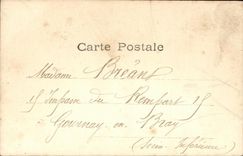 Carte Postale
Madame Bréant
15 Impasse du Rempart 15
Gournay en Bray
(Seine Inférieure)